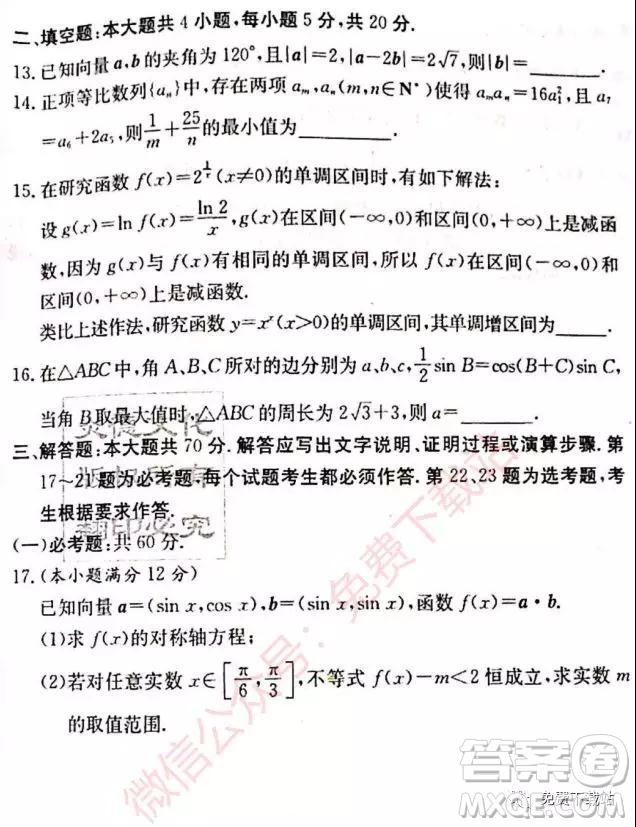 二、填空题:本大题共 4 小题,每小题 5 分,共 20 分.
13.已知向量 a,b 的夹角为 120°,且|a|=2,|a-2b|=2√7,则|b|=______.
14.正项等比数列{aₙ}中,存在两项 aₘ,aₙ(m,n∈N*)使得 aₘaₙ=16a₁²,且 a₇
=a₆+2a₅,则1/m+25/n的最小值为______.
15.在研究函数 f(x)=2^(1/x)(x≠0)的单调区间时,有如下解法:
设 g(x)=ln f(x)=ln 2/x,g(x)在区间(-∞,0)和区间(0,+∞)上是减函
数,因为 g(x)与 f(x)有相同的单调区间,所以 f(x)在区间(-∞,0)和
区间(0,+∞)上是减函数.
类比上述作法,研究函数 y=xˣ(x>0)的单调区间,其单调增区间为______.
16.在△ABC 中,角 A、B、C 所对的边分别为 a、b、c,1/2 sin B=cos(B+C)sin C,
当角 B 取最大值时,△ABC 的周长为 2√3+3,则 a=______.
三、解答题:本大题共 70 分.解答应写出文字说明、证明过程或演算步骤.第
17~21 题为必考题,每个试题考生都必须作答.第 22、23 题为选考题,考
生根据要求作答.
(一)必考题:共 60 分.
17.(本小题满分 12 分)
已知向量 a=(sin x,cos x),b=(sin x,sin x),函数 f(x)=a·b.
(1)求 f(x)的对称轴方程;
(2)若对任意实数 x∈[π/6,π/3],不等式 f(x)-m<2 恒成立,求实数 m
的取值范围.
版权所有
翻印必究
微信公众号:免费下载站
答案圈
MXQE.COM
免费下载站